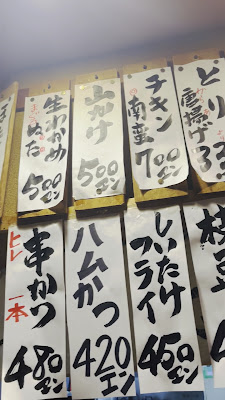 とり
唐揚げ
チキン
南蛮
700エン
山かけ
500エン
生わかめ
ぬた
500エン
枝豆
しいたけ
フライ
450エン
ハムかつ
420エン
串かつ
ヒレ
一本
480エン